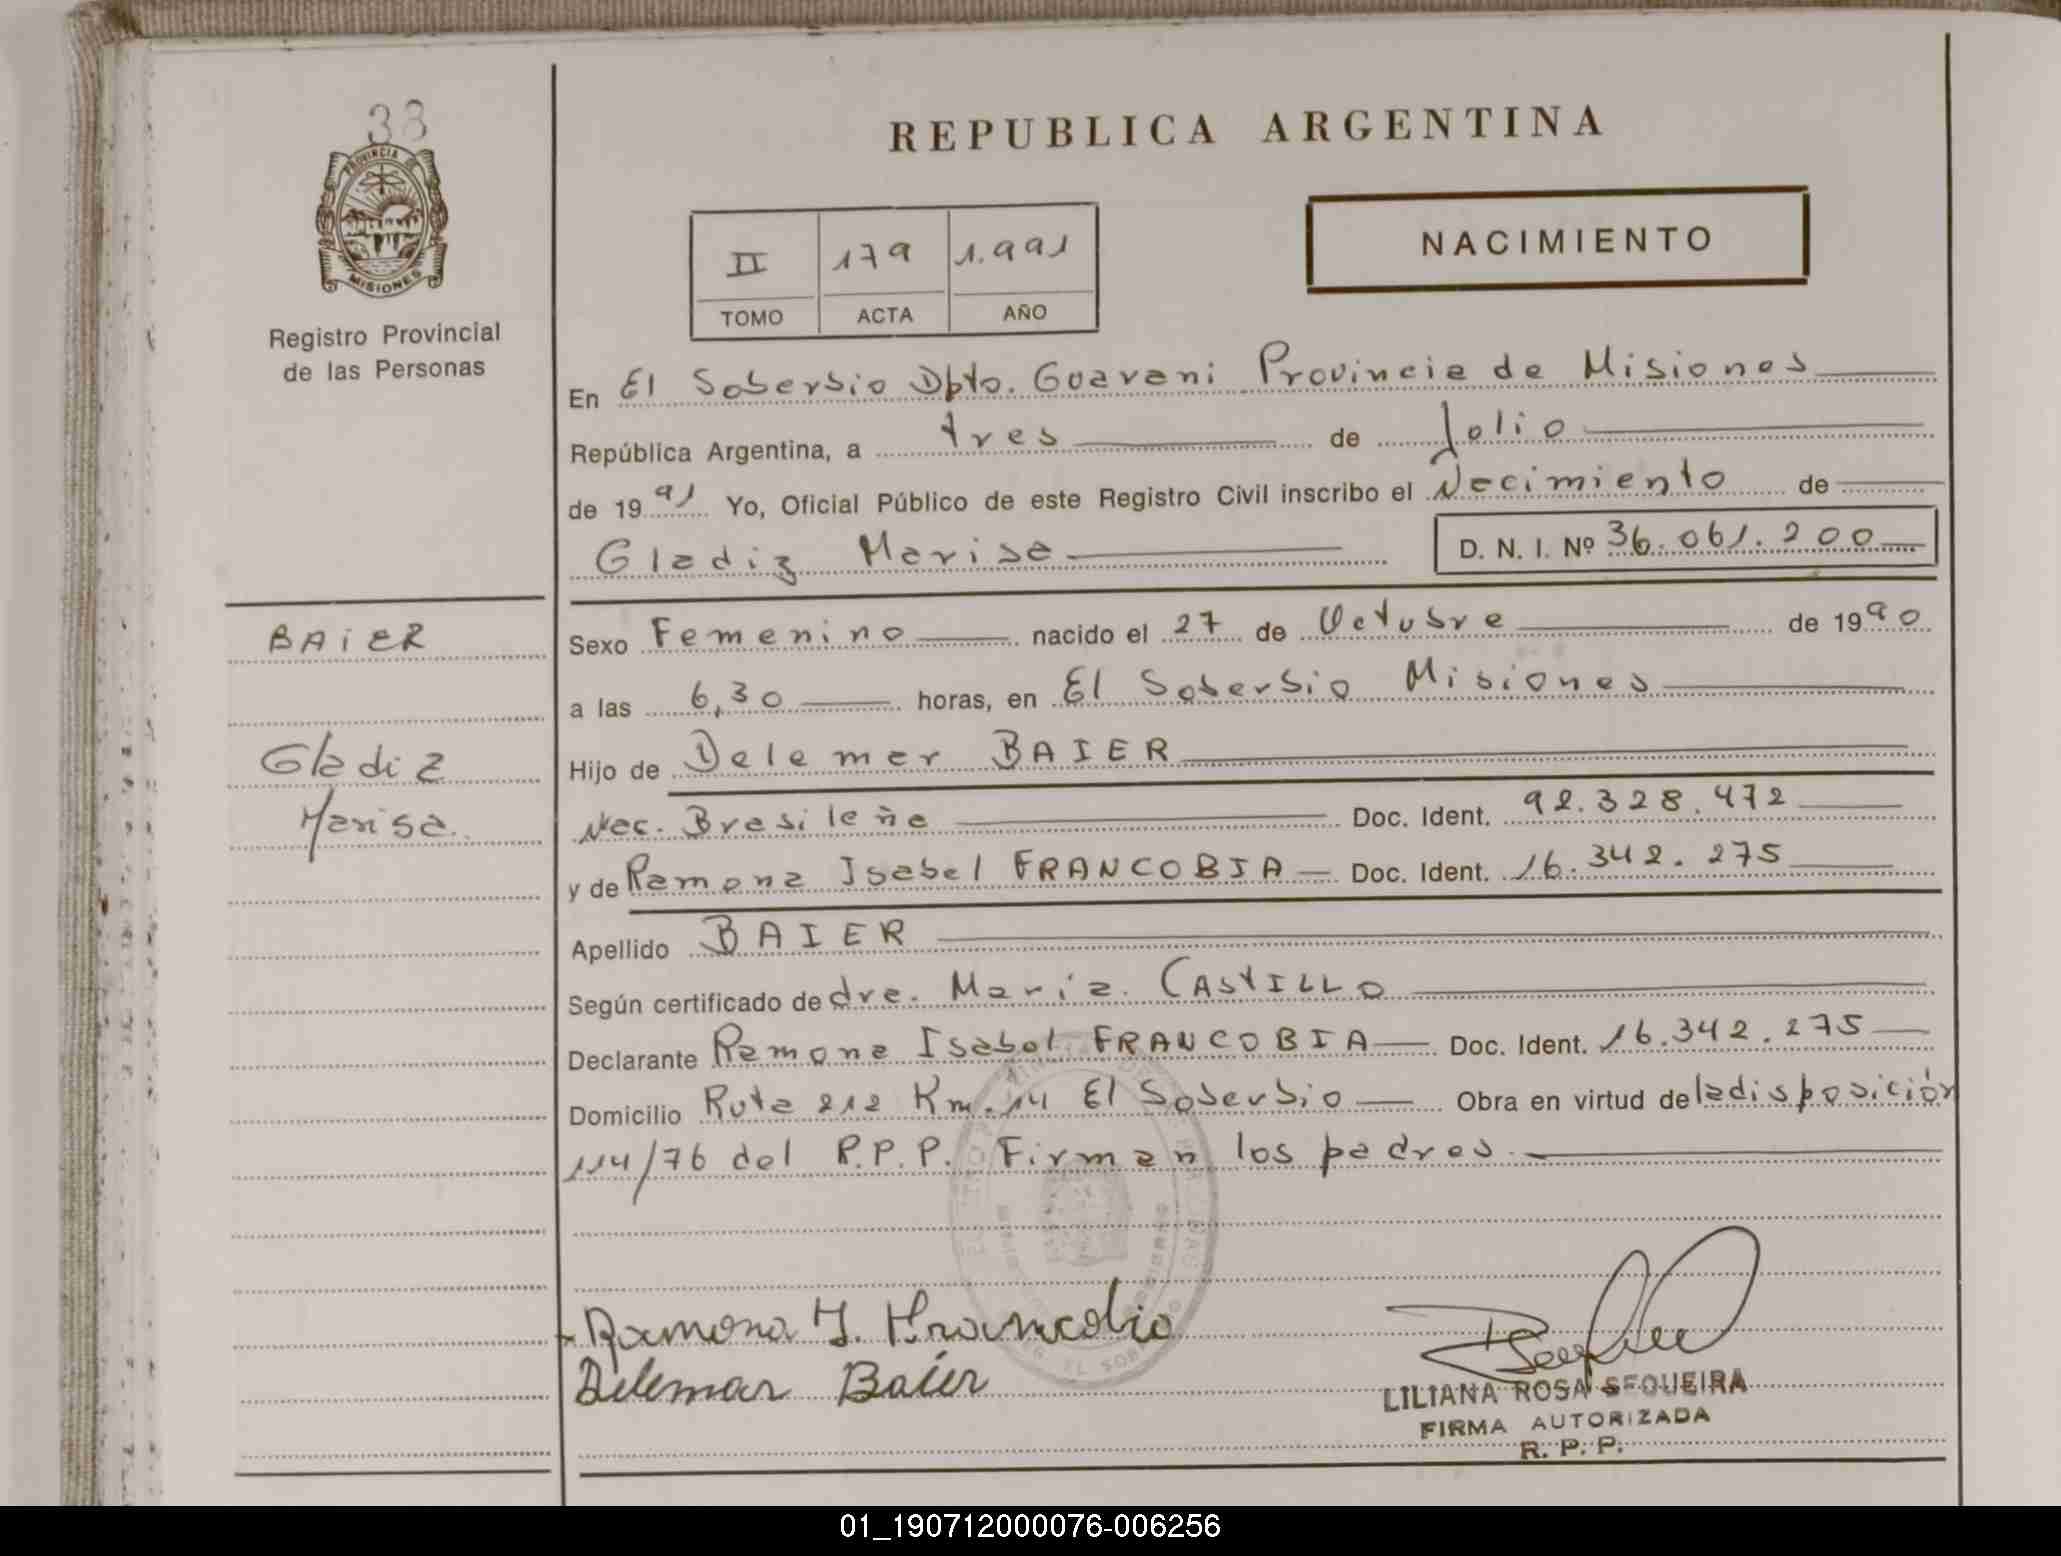 33
PROVINCIA DE
MISIONES
Registro Provincial
de las Personas
REPUBLICA ARGENTINA
II 179 1.991
TOMO ACTA AÑO
NACIMIENTO
En El Soberbio Dpto. Guarani Provincia de Misiones
República Argentina, a tres de Julio
de 1991 Yo, Oficial Público de este Registro Civil inscribo el Nacimiento de
Gladiz Marisa D. N. I. Nº 36.061.200
BAiER
Gladiz
Marisa
Sexo Femenino nacido el 27 de Octubre de 1990
a las 6,30 horas, en El Soberbio Misiones
Hijo de Delemar BAIER
Nac. Brasileña Doc. Ident. 92.328.472
y de Ramona Isabel FRANCOBIA Doc. Ident. 16.342.275
Apellido BAIER
Según certificado de dra. Maria CASTILLO
Declarante Ramona Isabel FRANCOBIA Doc. Ident. 16.342.275
Domicilio Ruta 212 Km.14 El Soberbio Obra en virtud de la disposición
114/76 del R.P.P. Firman los padres
Ramona I. Francobia
Delemar Baier
LILIANA ROSA SEQUEIRA
FIRMA AUTORIZADA
R. P. P.
01_190712000076-006256